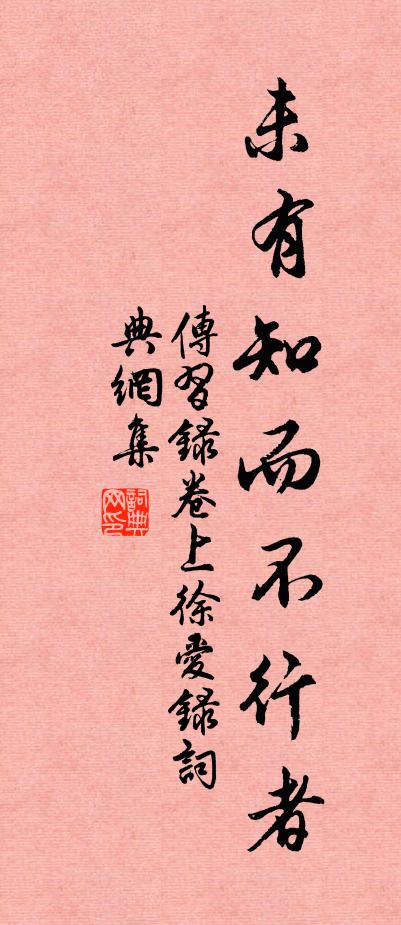 未有知而不行者
傳習録卷上徐愛録詞
典網集
詞典網印